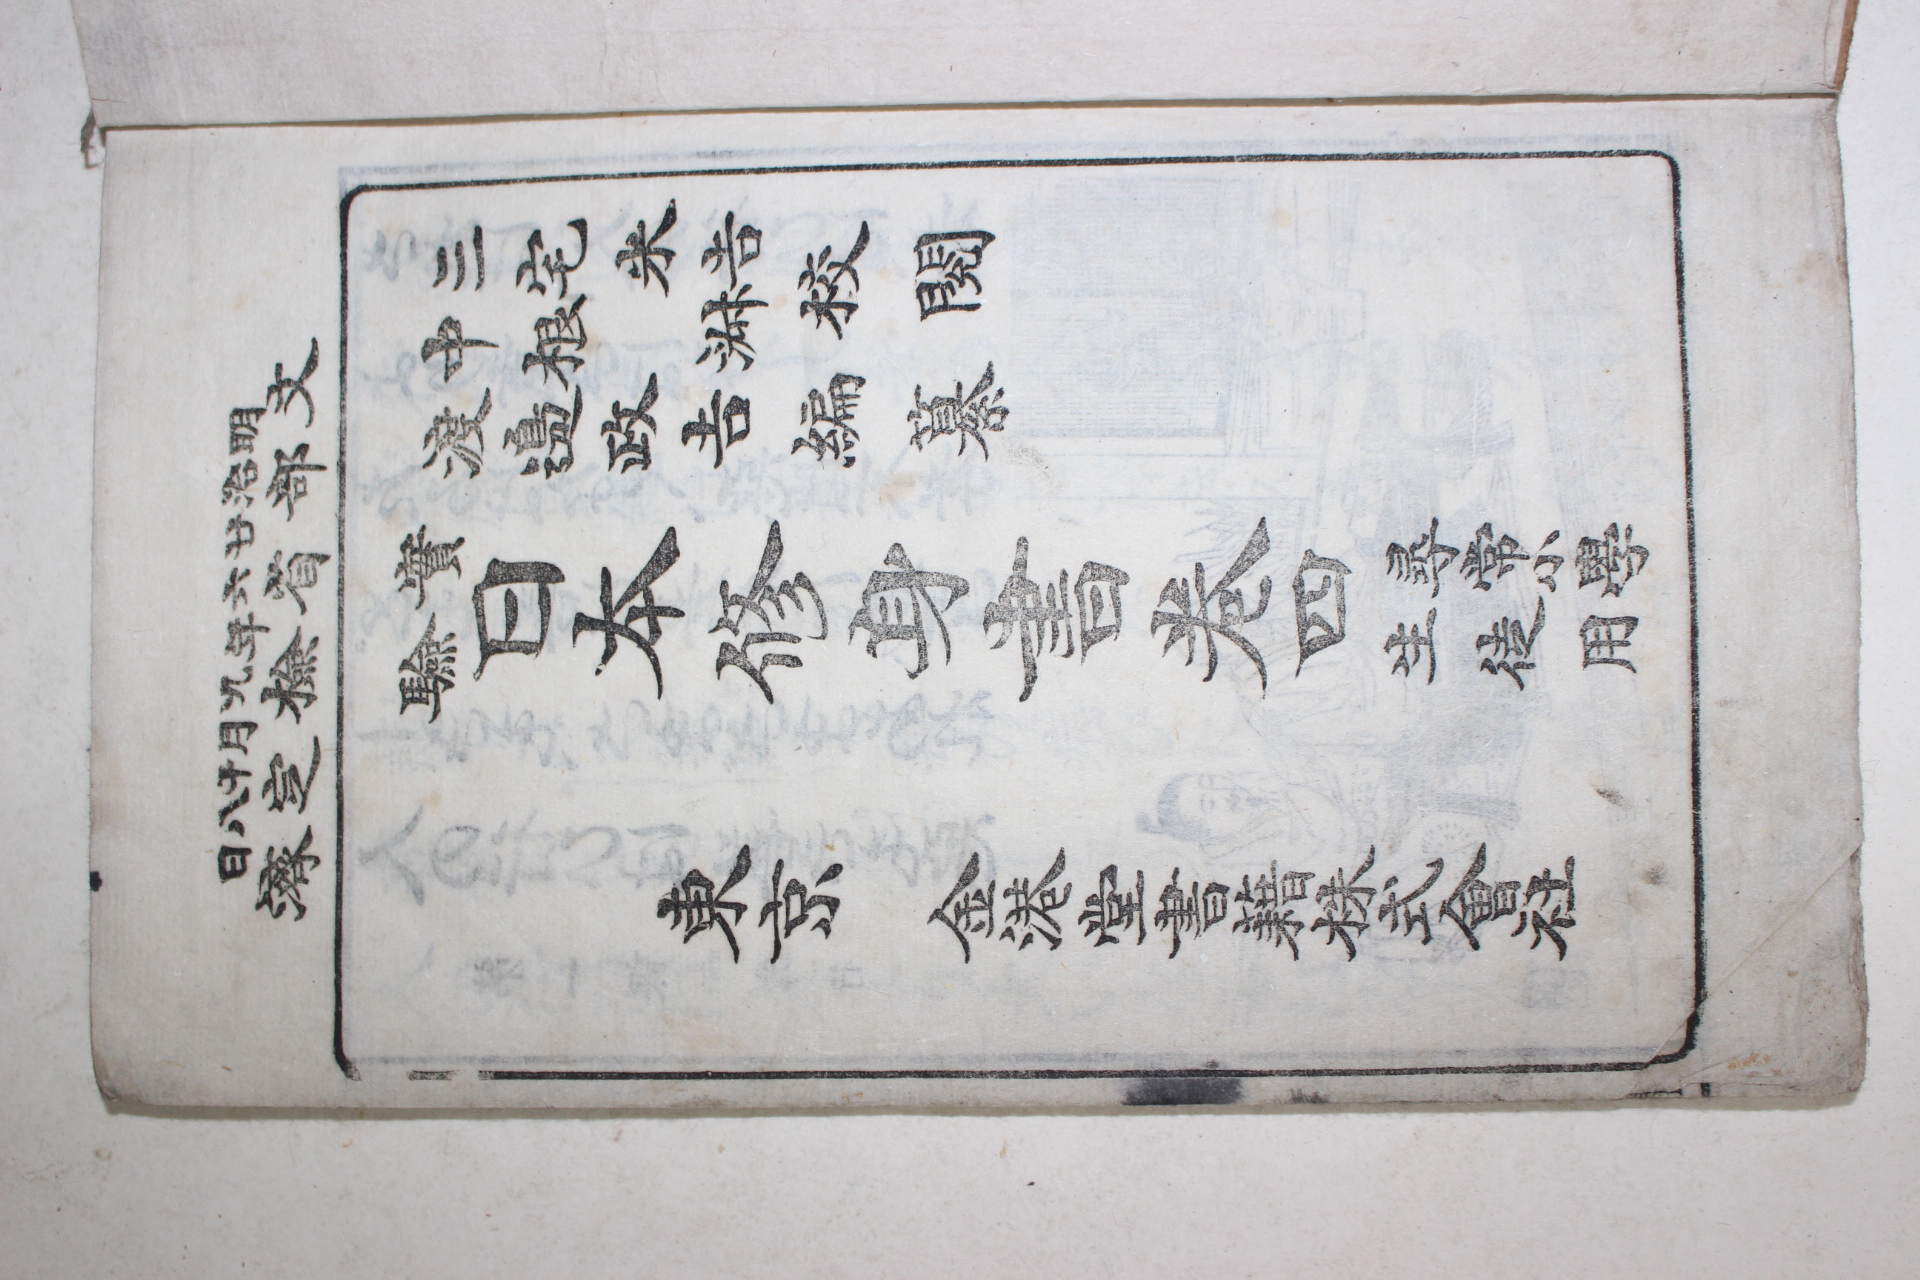 明治廿六年九月十八日
文部省檢定濟
三宅米吉校閲
中根淑
渡邊政吉編纂
實驗
日本修身書卷四
尋常小學
生徒用
東京 金港堂書籍株式會社